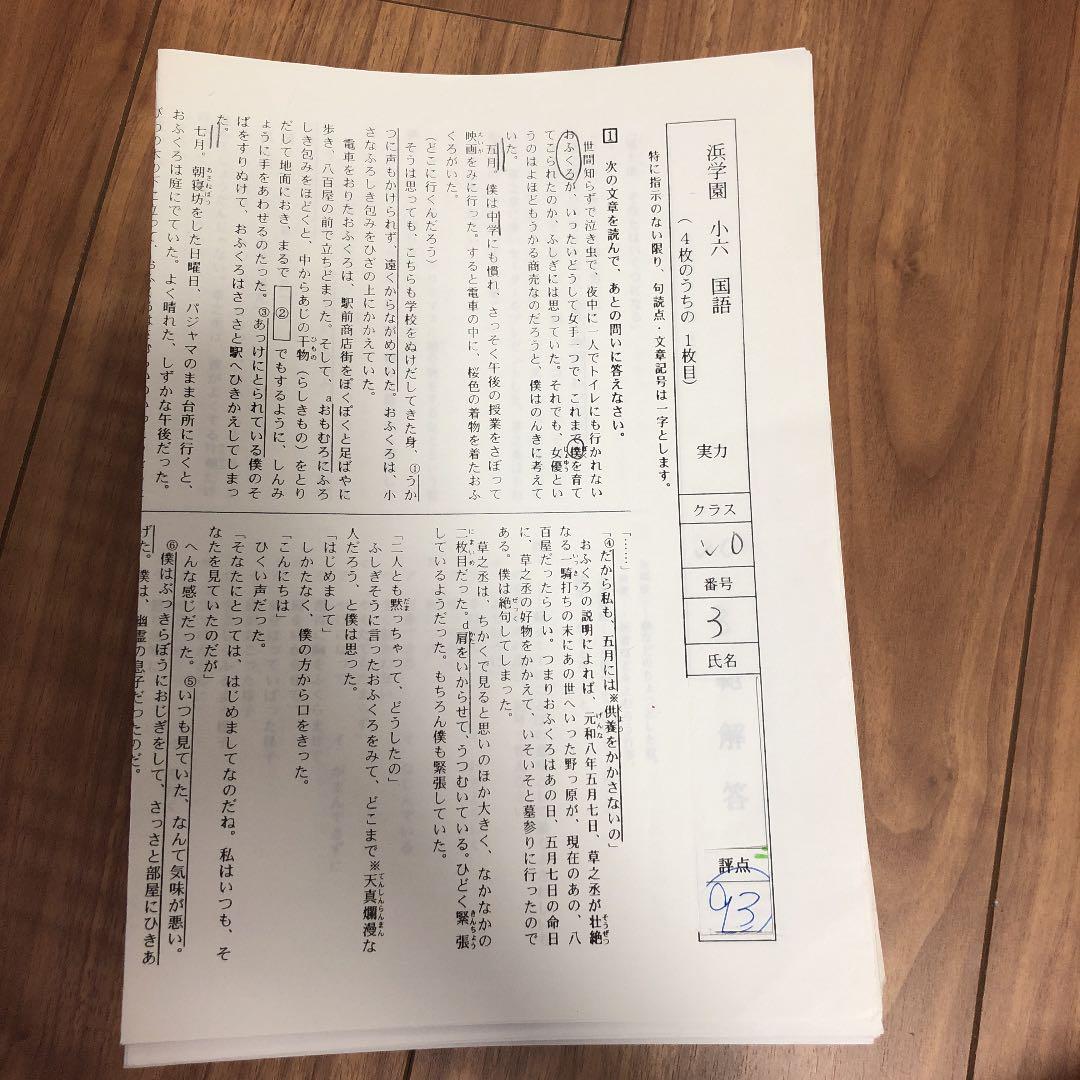 浜学園 小六 国語
（4枚のうちの 1枚目）
実力
クラス
V0
番号
3
氏名
評点
93
特に指示のない限り、句読点・文章記号は一字とします。
1 次の文章を読んで、あとの問いに答えなさい。
世間知らずで泣き虫で、夜中に一人でトイレにも行かれない
おふくろが、いったいどうして女手一つで、これまで僕を育て
てこられたのか、ふしぎには思っていた。それでも、女優とい
うのはよほどもうかる商売なのだろうと、僕はのんきに考えて
いた。
五月。僕は中学にも慣れ、さっそく午後の授業をさぼって
映画をみに行った。すると電車の中に、桜色の着物を着たおふ
くろがいた。
（どこに行くんだろう）
そうは思っても、こちらも学校をぬけだしてきた身、①うか
つに声もかけられず、遠くからながめていた。おふくろは、小
さなふろしき包みをひざの上にかかえていた。
電車をおりたおふくろは、駅前商店街をぽくぽくと足ばやに
歩き、八百屋の前で立ちどまった。そして、aおもむろにふろ
しき包みをほどくと、中からあじの干物（らしきもの）をとり
だして地面におき、まるで ② でもするように、しんみ
ょうに手をあわせるのたった。③あっけにとられている僕のそ
ばをすりぬけて、おふくろはさっさと駅へひきかえしてしまっ
た。
七月。朝寝坊をした日曜日、パジャマのまま台所に行くと、
おふくろは庭にでていた。よく晴れた、しずかな午後だった。
「……」
「④だから私も、五月には※供養をかかさないの」
おふくろの説明によれば、元和八年五月七日、草之丞が壮絶
なる一騎打ちの末にあの世へいった野っ原が、現在のあの、八
百屋だったらしい。つまりおふくろはあの日、五月七日の命日
に、草之丞の好物をかかえて、いそいそと墓参りに行ったので
ある。僕は絶句してしまった。
草之丞は、ちかくで見ると思いのほか大きく、なかなかの
二枚目だった。d肩をいからせて、うつむいている。ひどく緊張
しているようだった。もちろん僕も緊張していた。
「二人とも黙っちゃって、どうしたの」
ふしぎそうに言ったおふくろをみて、どこまで※天真爛漫な
人だろう、と僕は思った。
「はじめまして」
しかたなく、僕の方から口をきった。
「こんにちは」
ひくい声だった。
「そなたにとっては、はじめましてなのだね。私はいつも、そ
なたを見ていたのだが」
へんな感じだった。⑤いつも見ていた、なんて気味が悪い。
⑥僕はぶっきらぼうにおじぎをして、さっさと部屋にひきあ
げた。僕は、幽霊の息子だったのだ。
解答